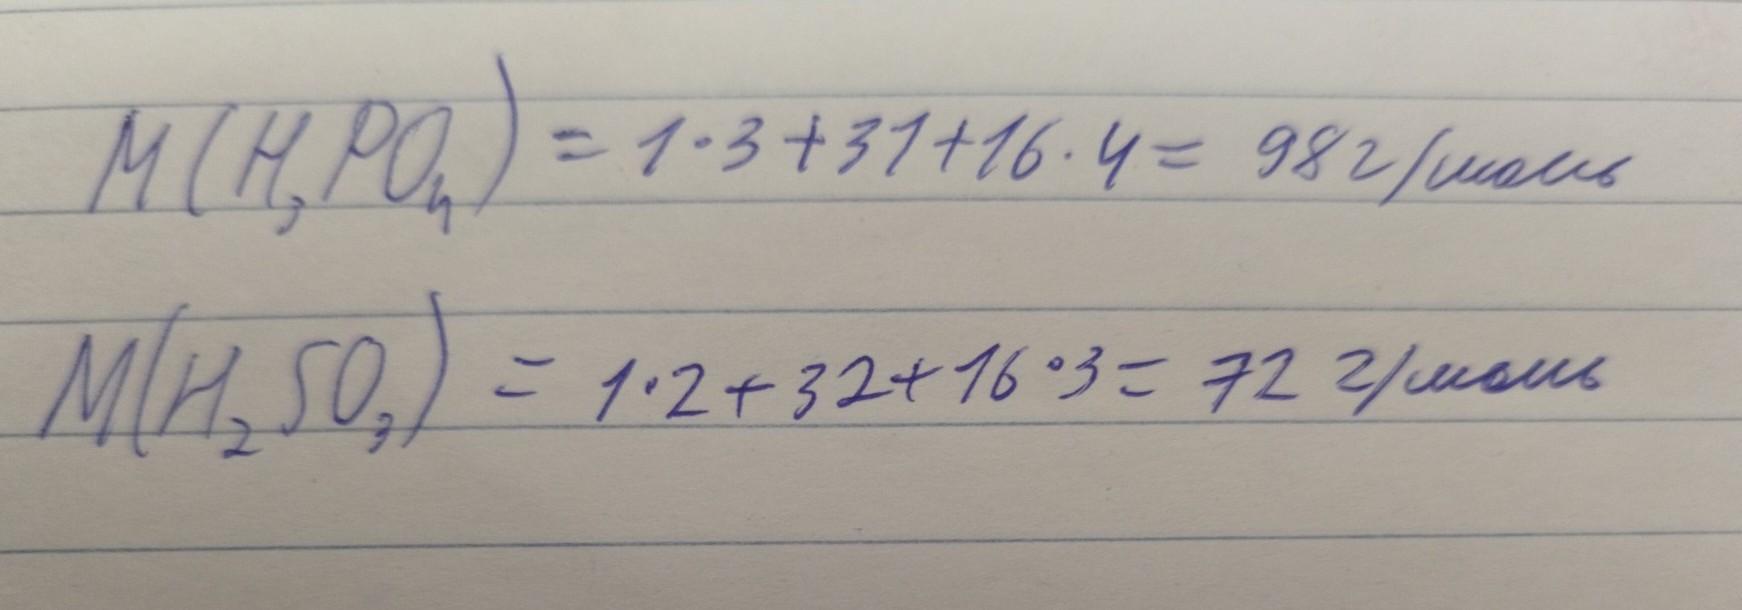 M(H₃PO₄) = 1·3+31+16·4= 98г/моль
M(H₂SO₃) = 1·2+32+16·3= 72 г/моль